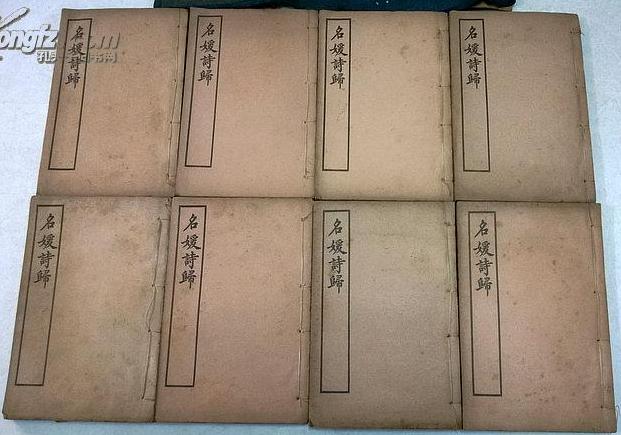 名媛詩歸
名媛詩歸
名媛詩歸
名媛詩歸
名媛詩歸
名媛詩歸
名媛詩歸
名媛詩歸